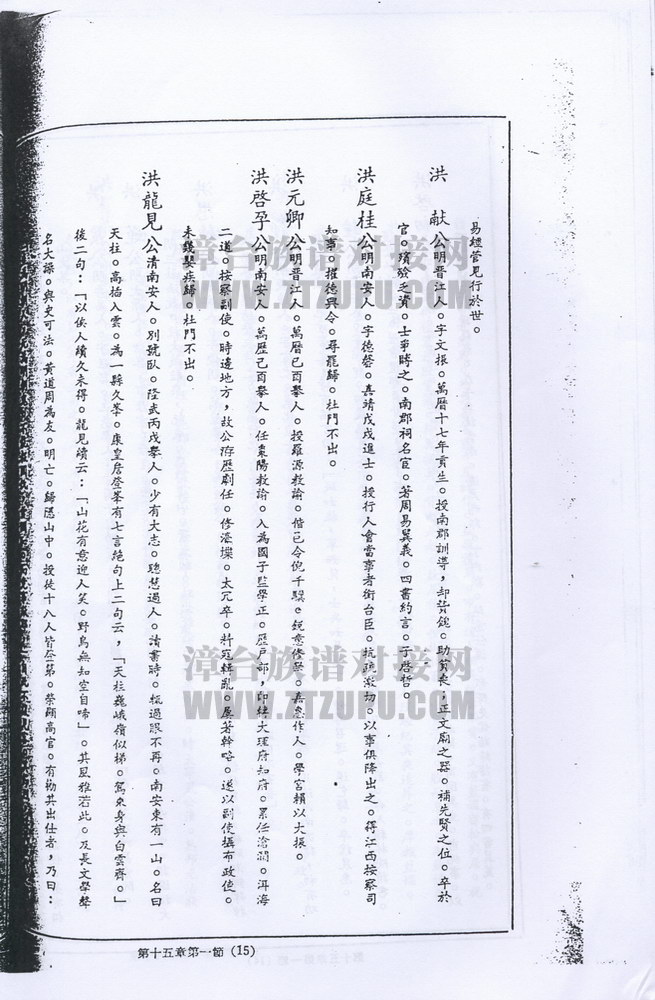 易經管見行於世。
洪　獻公明晉江人。字文振。萬曆十七年貢生。授南郡訓導，却贄錢。助貧喪，正文廟之器。補先賢之位。卒於
官。殯殮乏資。士爭賻之。南郡祠名宦。著周易翼義。四書約言。子啓哲。
洪庭桂公明南安人。字德馨。真靖戊戌進士。授行人會當事者銜台臣。抗疏激切。以事俱降出之。得江西按察司
知事。擢德興令。尋罷歸。杜門不出。
洪元卿公明晉江人。萬曆己酉舉人。授羅源教諭。偕邑令倪千騤。銳意修學。嘉惠作人。學宮賴以大振。
洪啓孚公明南安人。萬歷己酉舉人。任棗陽教諭。入為國子監學正。歷戶部，大理府知府。累任洱海
二道。按察副使。時邊地方，故公。修濠堞。太冗卒。亂。屢著幹略。遂以副使攝布政使。
未幾嬰疾歸。杜門不出。
洪龍見公清南安人。別號臥。隆武丙戌舉人。少有大志。聰慧過人。讀書時。極過眼不再。南安東有一山。名曰
天柱。高插入雲。為一縣久峯。康皇詹登峯有七言絕句上二句云，「天柱巍峨嶺似梯。駕來身與白雲齊。」
後二句：「以俟人續久未得。龍見續云：「山花有意迎人笑。野鳥無知空自啼」。其風雅若此。及長文學聲
名大譟。與史可法。黃道周為友。明亡。歸隱山中。授徒十八人皆登第。榮顯高官。有勸其出仕者，乃曰：
第十五章第一節 (15)
漳台族谱对接网
WWW.ZTZUPU.COM
漳台族谱对接网
WWW.ZTZUPU.COM